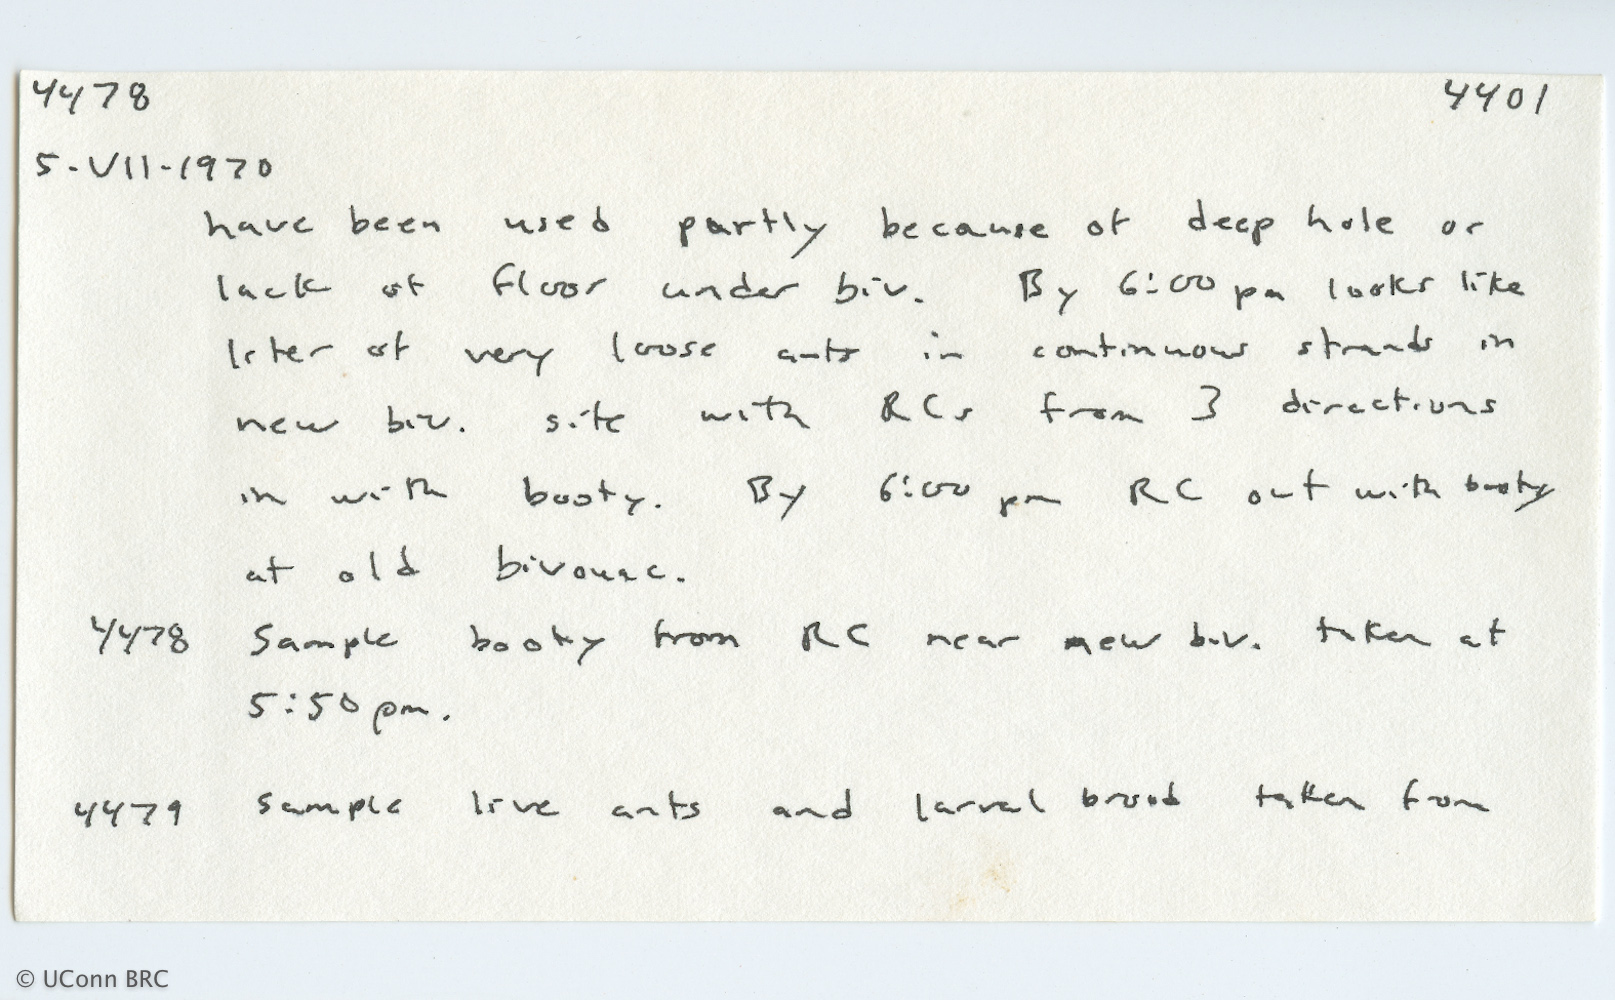 4478 4401
5-VII-1970
have been used partly because of deep hole or
lack of floor under biv. By 6:00 pm looks like
liter of very loose ants in continuous strands in
new biv. site with RCs from 3 directions
in with booty. By 6:00 pm RC out with booty
at old bivouac.
4478 Sample booty from RC near new biv. taken at
5:50 pm.
4479 Sample live ants and larval brood taken from
© UConn BRC